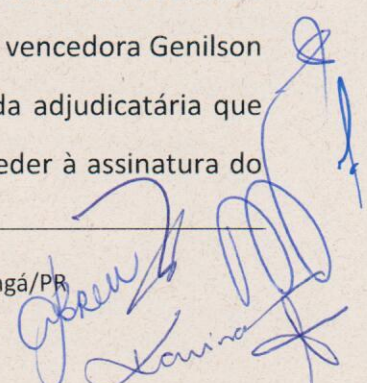 vencedora Genilson
da adjudicatária que
eder à assinatura do
gá/PR
Karina